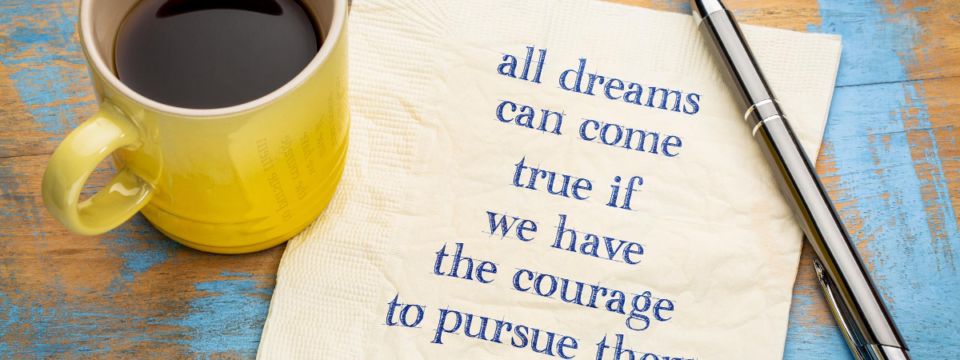 all dreams
can come
true if
we have
the courage
to pursue them